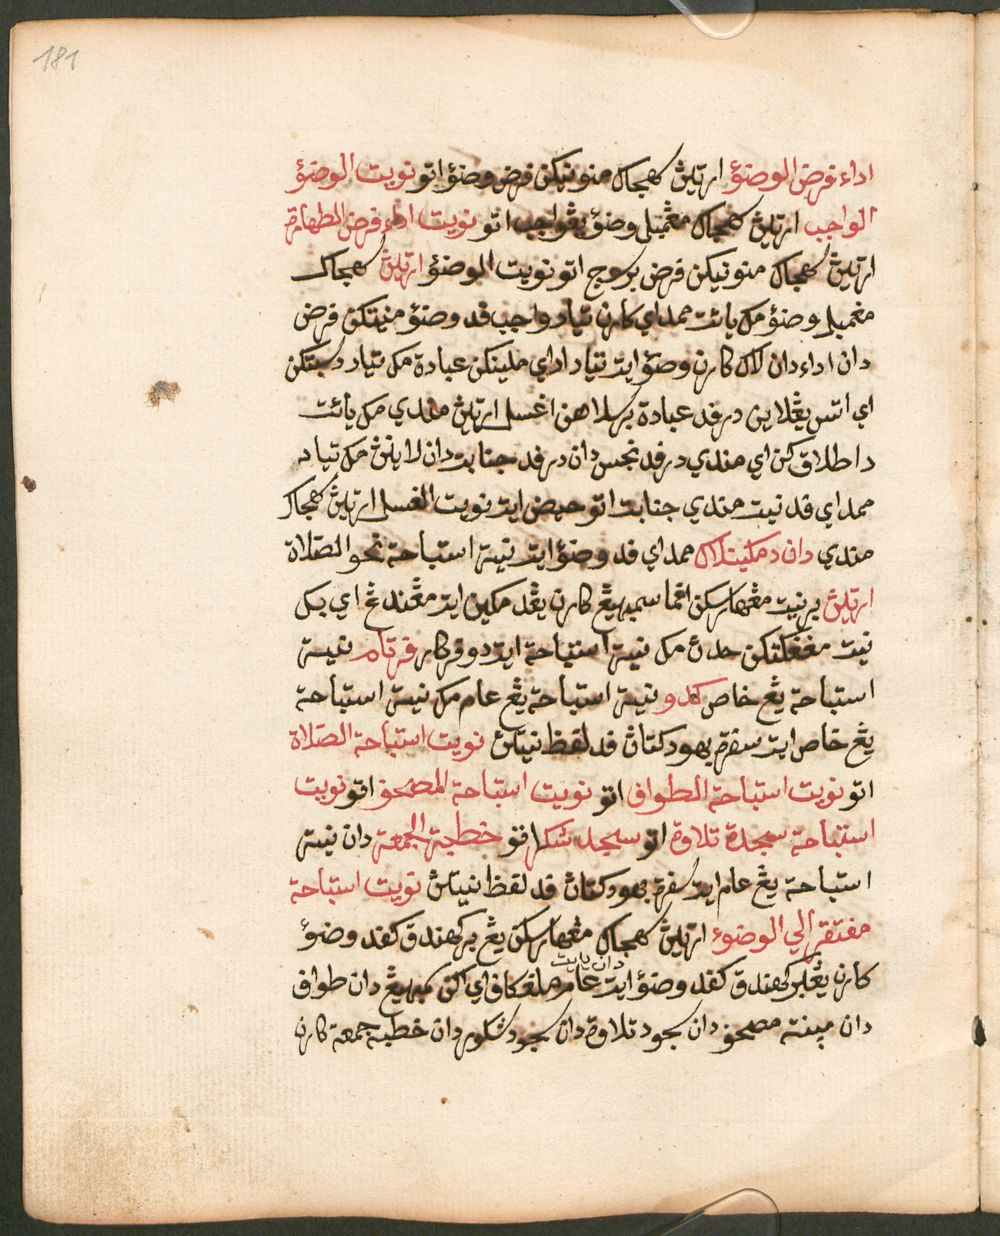 181
اداء فرض الوضوٴ ارتيڽ كهجاك منونيكن فرض وضوٴ اتو نويت الوضوٴ
الواجب ارتيڽ كهجاك مڠمبل وضوٴ يڠ واجب اتو نويت اداء فرض الطهارة
ارتيڽ كهجاك منونيكن فرض برسوچ اتو نويت الوضوٴ ارتيڽ كهجاك
مڠمبل وضوٴ مك يائت ممداي كارن تياد واجب فد وضوٴ مپتكن فرض
دان اداء دان لاڬ كارن وضوٴ ايت تياد اداي ملينكن عبادة مك تياد دسبتكن
اي اتس يڠ لاين درفد عبادة برسلاهن اغسل ارتيڽ مندي مك يائت
داطلاق كن اي مندي درفد نجس دان درفد جنابت دان لاينڽ مك تياد
ممداي فد نية مندي جنابت اتو حيض ايت نويت الغسل ارتيڽ كهجاك
مندي دان دمكينله لاڬ ممداي فد وضوٴ ايت نية استباحة نحو الصلاة
ارتيڽ برنية مڠهارسكن اڤما سمبهيڠ كارن يڠ دمكين ايت مڠندڠ اي بڬ
نية مڠڠكتكن حدث مك نية استباحة ايت دوفركار فرتام نية
استباحة يڠ خاص كدو نية استباحة يڠ عام مك نية استباحة
يڠ خاص ايت سفرت بهود كتاڽ فد لفظ نيتڽ نويت استباحة الصلاة
اتو نويت استباحة الطواف اتو نويت استباحة المصحف اتو نويت
استباحة سجدة تلاوة اتو سجد شكر اتو خطبة الجمعة دان نية
استباحة يڠ عام ايت سفرت بهود كتاڽ فد لفظ نيتڽ نويت استباحة
مفتقر الي الوضوء ارتيڽ كهجاك مڠهارسكن يڠ بركهندق كفد وضوٴ
كارن يڠ بركهندق كفد وضوٴ ايت عام دان يائت ملڠكافي اي اكن سمبهيڠ دان طواف
دان مپنته مصحف دان سجود تلاوة دان سجود شكور دان خطبة جمعة كارن